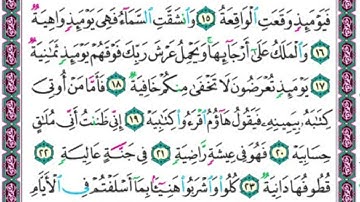 فَيَوْمَئِذٍ وَقَعَتِ ٱلْوَاقِعَةُ ١٥ وَٱنشَقَّتِ ٱلسَّمَآءُ فَهِىَ يَوْمَئِذٍ وَاهِيَةٌ
١٦ وَٱلْمَلَكُ عَلَىٰٓ أَرْجَآئِهَا وَيَحْمِلُ عَرْشَ رَبِّكَ فَوْقَهُمْ يَوْمَئِذٍ ثَمَٰنِيَةٌ
١٧ يَوْمَئِذٍ تُعْرَضُونَ لَا تَخْفَىٰ مِنكُمْ خَافِيَةٌ ١٨ فَأَمَّا مَنْ أُوتِىَ
كِتَٰبَهُۥ بِيَمِينِهِۦ فَيَقُولُ هَآؤُمُ ٱقْرَءُوا۟ كِتَٰبِيَهْ ١٩ إِنِّى ظَنَنتُ أَنِّى مُلَٰقٍ
حِسَابِيَهْ ٢٠ فَهُوَ فِى عِيشَةٍ رَّاضِيَةٍ ٢١ فِى جَنَّةٍ عَالِيَةٍ ٢٢
قُطُوفُهَا دَانِيَةٌ ٢٣ كُلُوا۟ وَٱشْرَبُوا۟ هَنِيٓـًٔۢا بِمَآ أَسْلَفْتُمْ فِى ٱلْأَيَّامِ